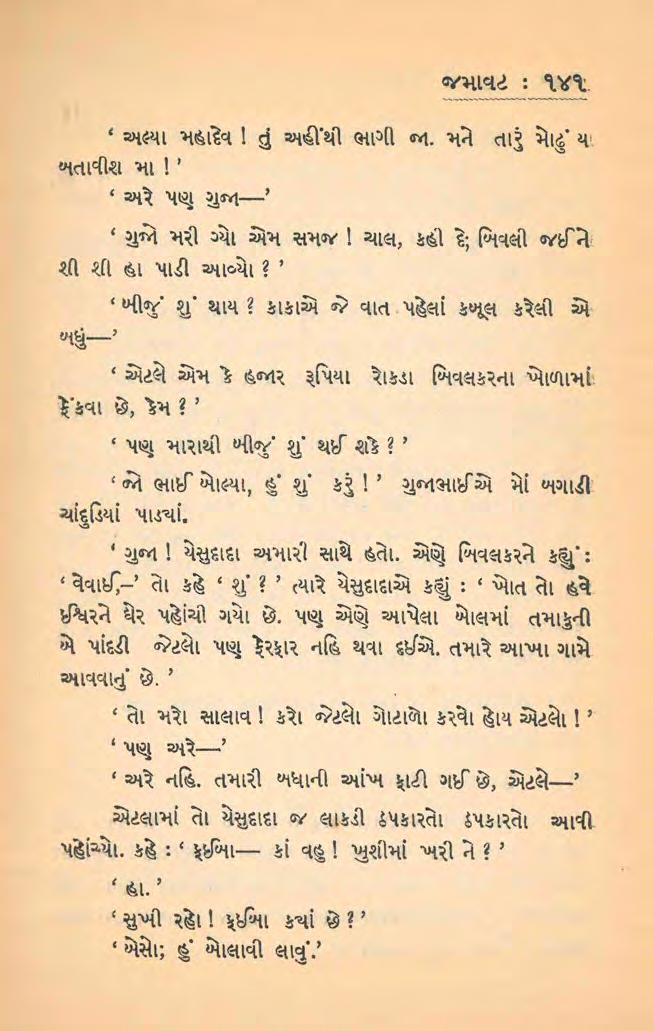 જમાવટ : ૧૪૧
‘ અલ્યા મહાદેવ ! તું અહીંથી ભાગી જા. મને તારું મોઢું ય
બતાવીશ મા ! ’
‘ અરે પણ ગુજા—’
‘ ગુજો મરી ગ્યો એમ સમજ ! ચાલ, કહી દે; બિવલી જઈને
શી શી હા પાડી આવ્યો ? ’
‘ બીજું શું થાય ? કાકાએ જે વાત પહેલાં કબૂલ કરેલી એ
બધું—’
‘ એટલે એમ કે હજાર રૂપિયા રોકડા બિવલકરના ખોળામાં
ફેંકવા છે, કેમ ? ’
‘ પણ મારાથી બીજું શું થઈ શકે ? ’
‘ જો ભાઈ બોલ્યા, હું શું કરું ! ’ ગુજાભાઈએ મોં બગાડી
ચાંદુડિયાં પાડ્યાં.
‘ ગુજા ! યેસુદાદા અમારી સાથે હતો. એણે બિવલકરને કહ્યું :
‘ વેવાઈ,–’ તો કહે ‘ શું ? ’ ત્યારે યેસુદાદાએ કહ્યું : ‘ ખોત તો હવે
ઈશ્વરને ઘેર પહોંચી ગયો છે. પણ એણે આપેલા બોલમાં તમાકુની
એ પાંદડી જેટલો પણ ફેરફાર નહિ થવા દઈએ. તમારે આખા ગામે
આવવાનું છે. ’
‘ તો મરો સાલાવ ! કરો જેટલો ગોટાળો કરવો હોય એટલો ! ’
‘ પણ અરે—’
‘ અરે નહિ. તમારી બધાની આંખ ફાટી ગઈ છે, એટલે—’
એટલામાં તો યેસુદાદા જ લાકડી ઠપકારતો ઠપકારતો આવી
પહોંચ્યો. કહે : ‘ ફઈબા— કાં વહુ ! ખુશીમાં ખરી ને ? ’
‘ હા. ’
‘ સુખી રહો ! ફઈબા ક્યાં છે ? ’
‘ બેસો; હું બોલાવી લાવું.’